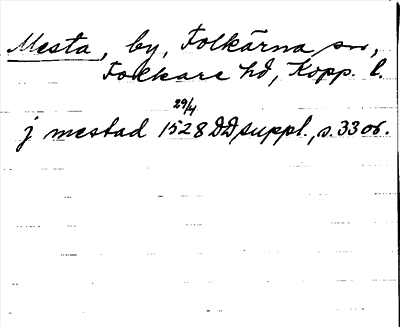 Mesta, by, Folkärna sn,
Folkare hd, Kopp. l.
29/4
j mestad 1528 DD suppl., s. 33 or.